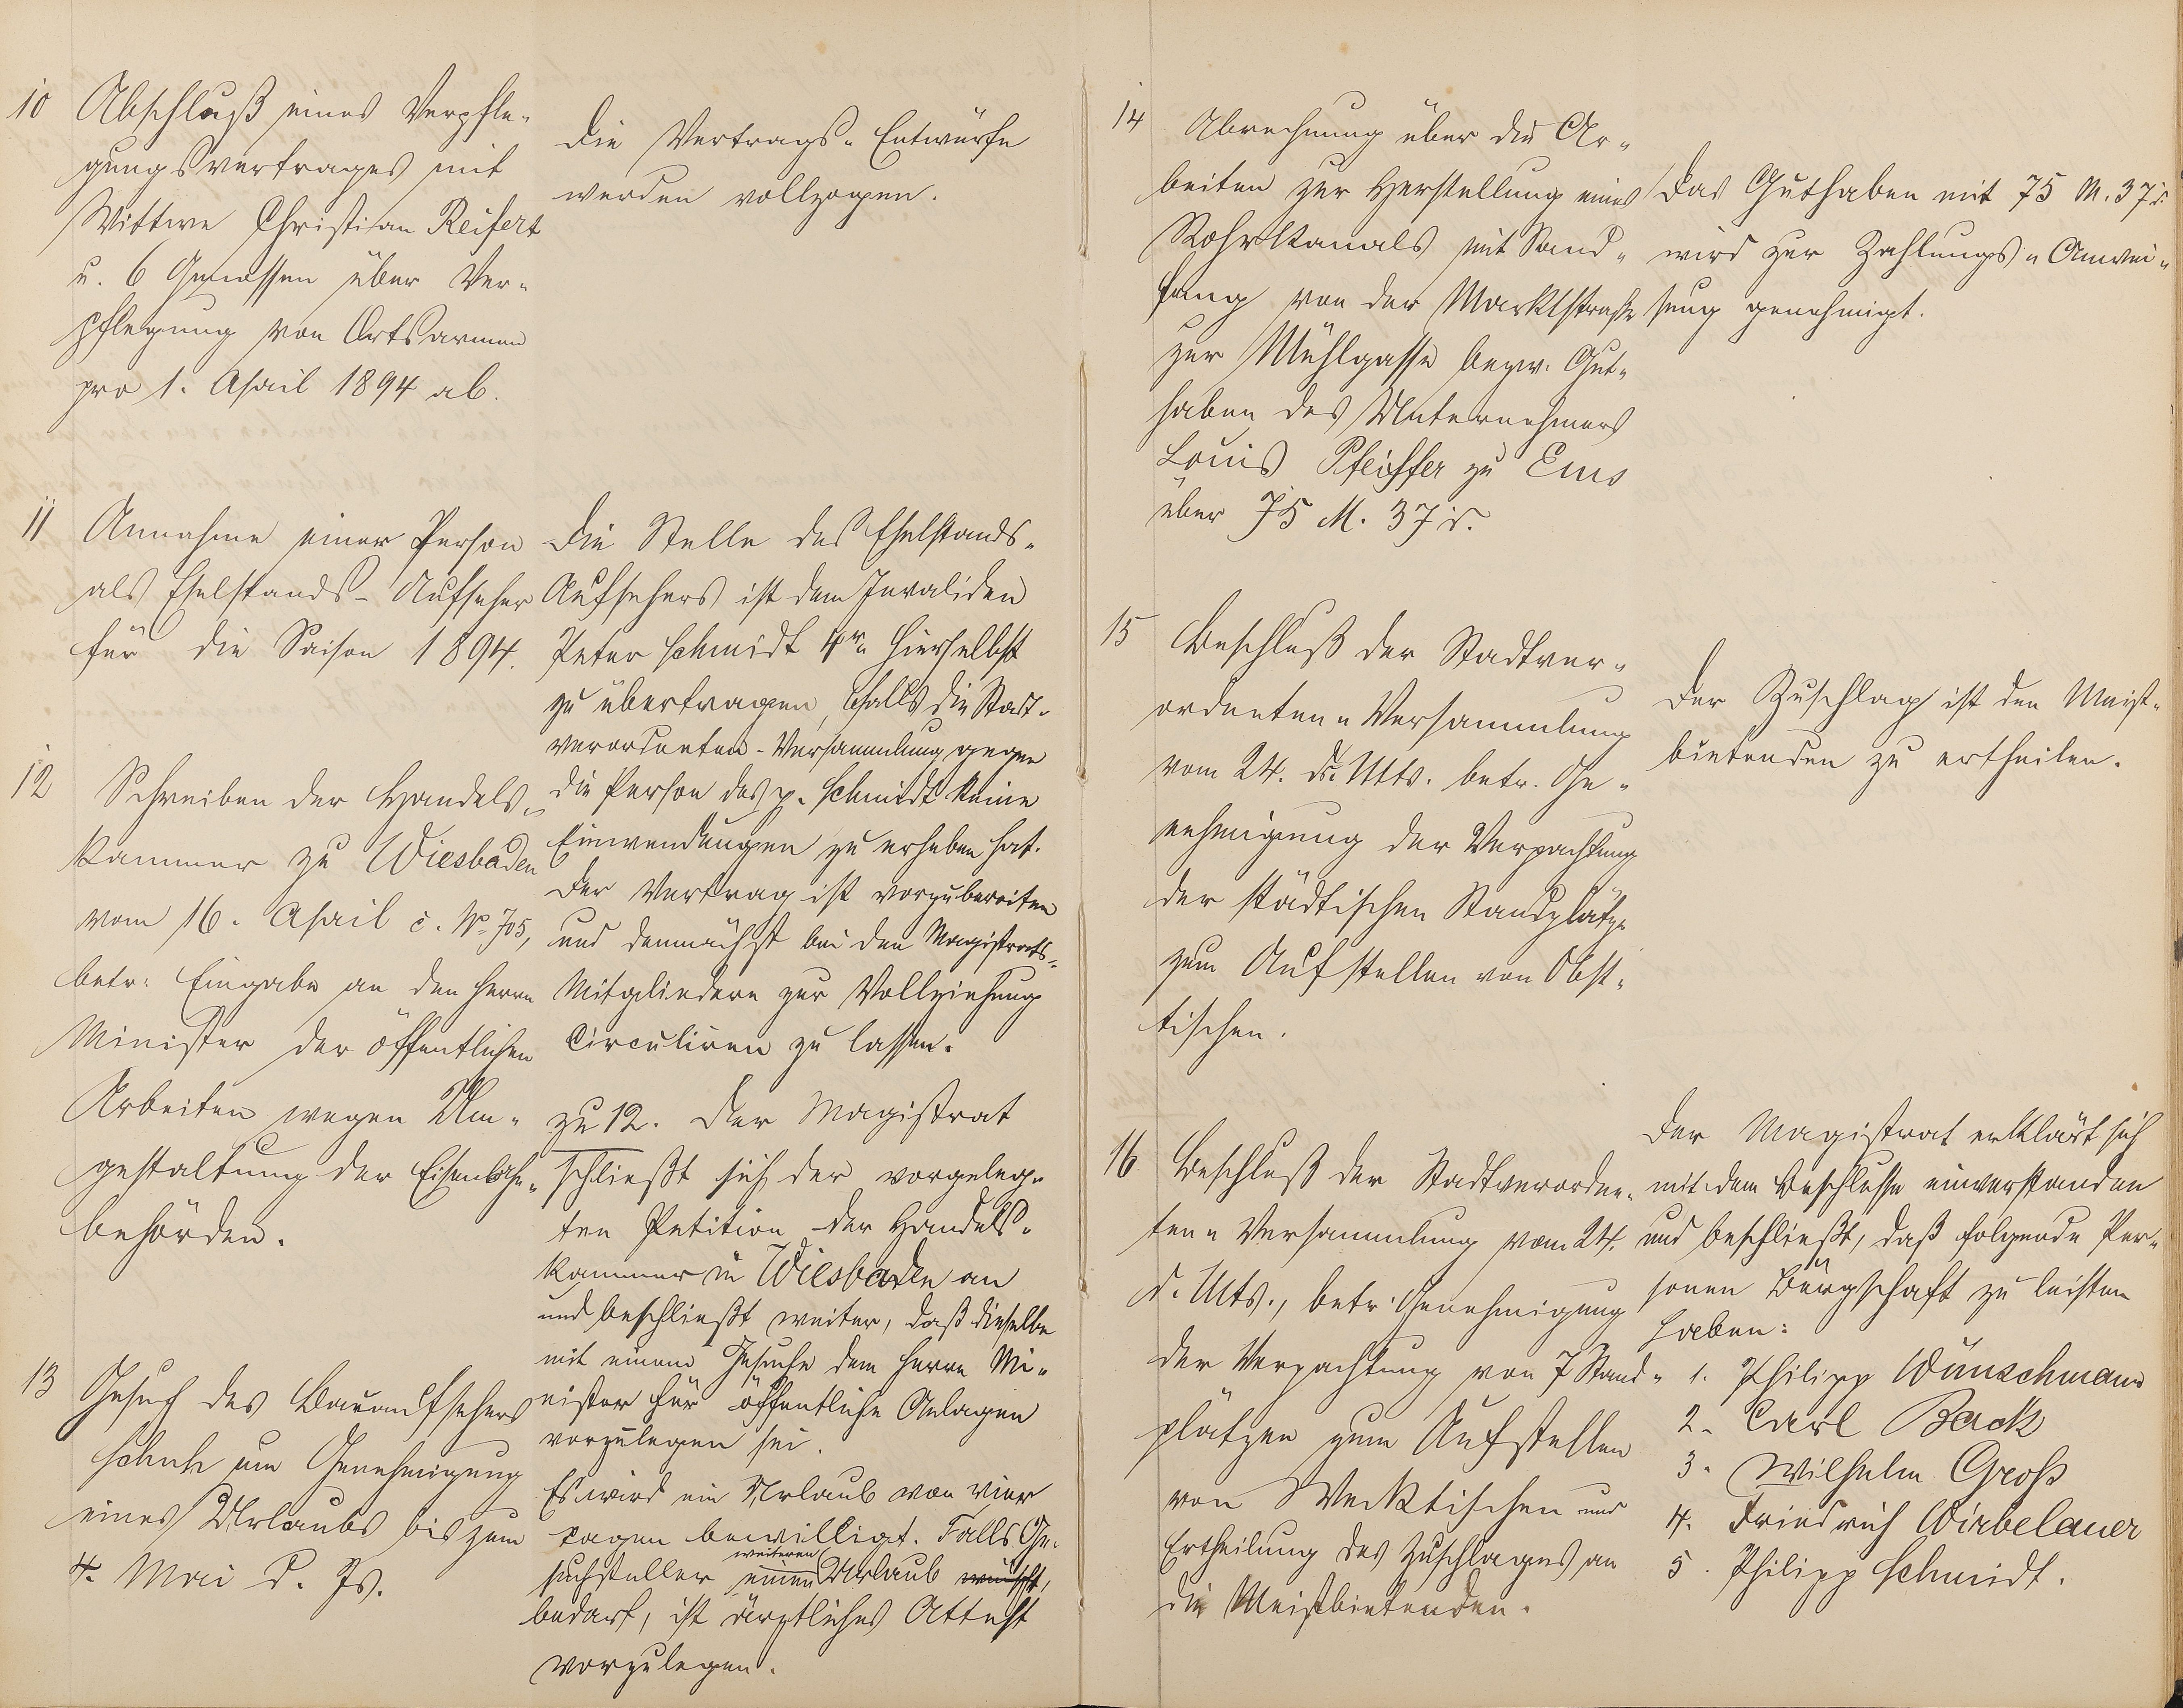 10 Abschluß eines Verpfle-
gungsvertrages mit
Wittwe Christian Reifert
u. 6 Genossen über Ver-
pflegung von Ortsarmen
pro 1. April 1894 ab.
Die Vertrags-Entwürfe
werden vollzogen.
11 Annahme einer Person
als Eselstands-Aufseher
für die Saison 1894.
Die Stelle des Eselstands-
Aufsehers ist dem Invaliden
Peter Schmidt 4r. hierselbst
zu übertragen, falls die Stadt-
verordneten-Versammlung gegen
die Person des p. Schmidt keine
Einwendungen zu erheben hat.
Der Vertrag ist vorzubereiten
und demnächst bei den Magistrats-
Mitgliedern zur Vollziehung
Circuliren zu lassen.
12 Schreiben der Handels-
kammer zu Wiesbaden
vom 16. April c. No. 705,
betr. Eingabe an den Herrn
Minister der öffentlichen
Arbeiten wegen Um-
gestaltung der Eisenbahn-
behörden.
zu 12. Der Magistrat
schließt sich der vorgeleg-
ten Petition der Handels-
kammer in Wiesbaden an
und beschließt weiter, daß dieselbe
mit einem Gesuche dem Herrn Mi-
nister für öffentliche Anlagen
vorzulegen sei.
13 Gesuch des Bauaufsehers
Schuh um Genehmigung
eines Urlaubs bis zum
4. Mai d. Js.
Es wird ein Urlaub von vier
Tagen bewilligt. Falls Ge-
suchsteller einen weiteren Urlaub wünscht,
bedarf, ist ärztliches Attest
vorzulegen.
14 Abrechnung über die Ar-
beiten zur Herstellung eines
Rohrkanals mit Sand-
fang von der Marktstraße
zur Mühlgasse bezw. Gut-
haben des Unternehmers
Louis Pfeiffer zu Ems
über 75 M. 37 d.
Das Guthaben mit 75 M. 37 d.
wird zur Zahlungs-Anwei-
sung genehmigt.
15 Beschluß der Stadtver-
ordneten-Versammlung
vom 24. ds. Mts. betr. Ge-
nehmigung der Verpachtung
der städtischen Standplätze
zum Aufstellen von Obst-
tischen.
Der Zuschlag ist den Meist-
bietenden zu ertheilen.
16 Beschluß der Stadtverordne-
ten-Versammlung vom 24.
d. Mts., betr. Genehmigung
der Verpachtung von 7 Stand-
plätzen zum Aufstellen
von Wecktischen und
Ertheilung des Zuschlages an
die Meistbietenden.
Der Magistrat erklärt sich
mit dem Beschlusse einverstanden
und beschließt, daß folgende Per-
sonen Bürgschaft zu leisten
haben:
1. Philipp Wünschmann
2. Carl Back
3. Wilhelm Groß
4. Friedrich Wirbelauer
5. Philipp Schmidt.